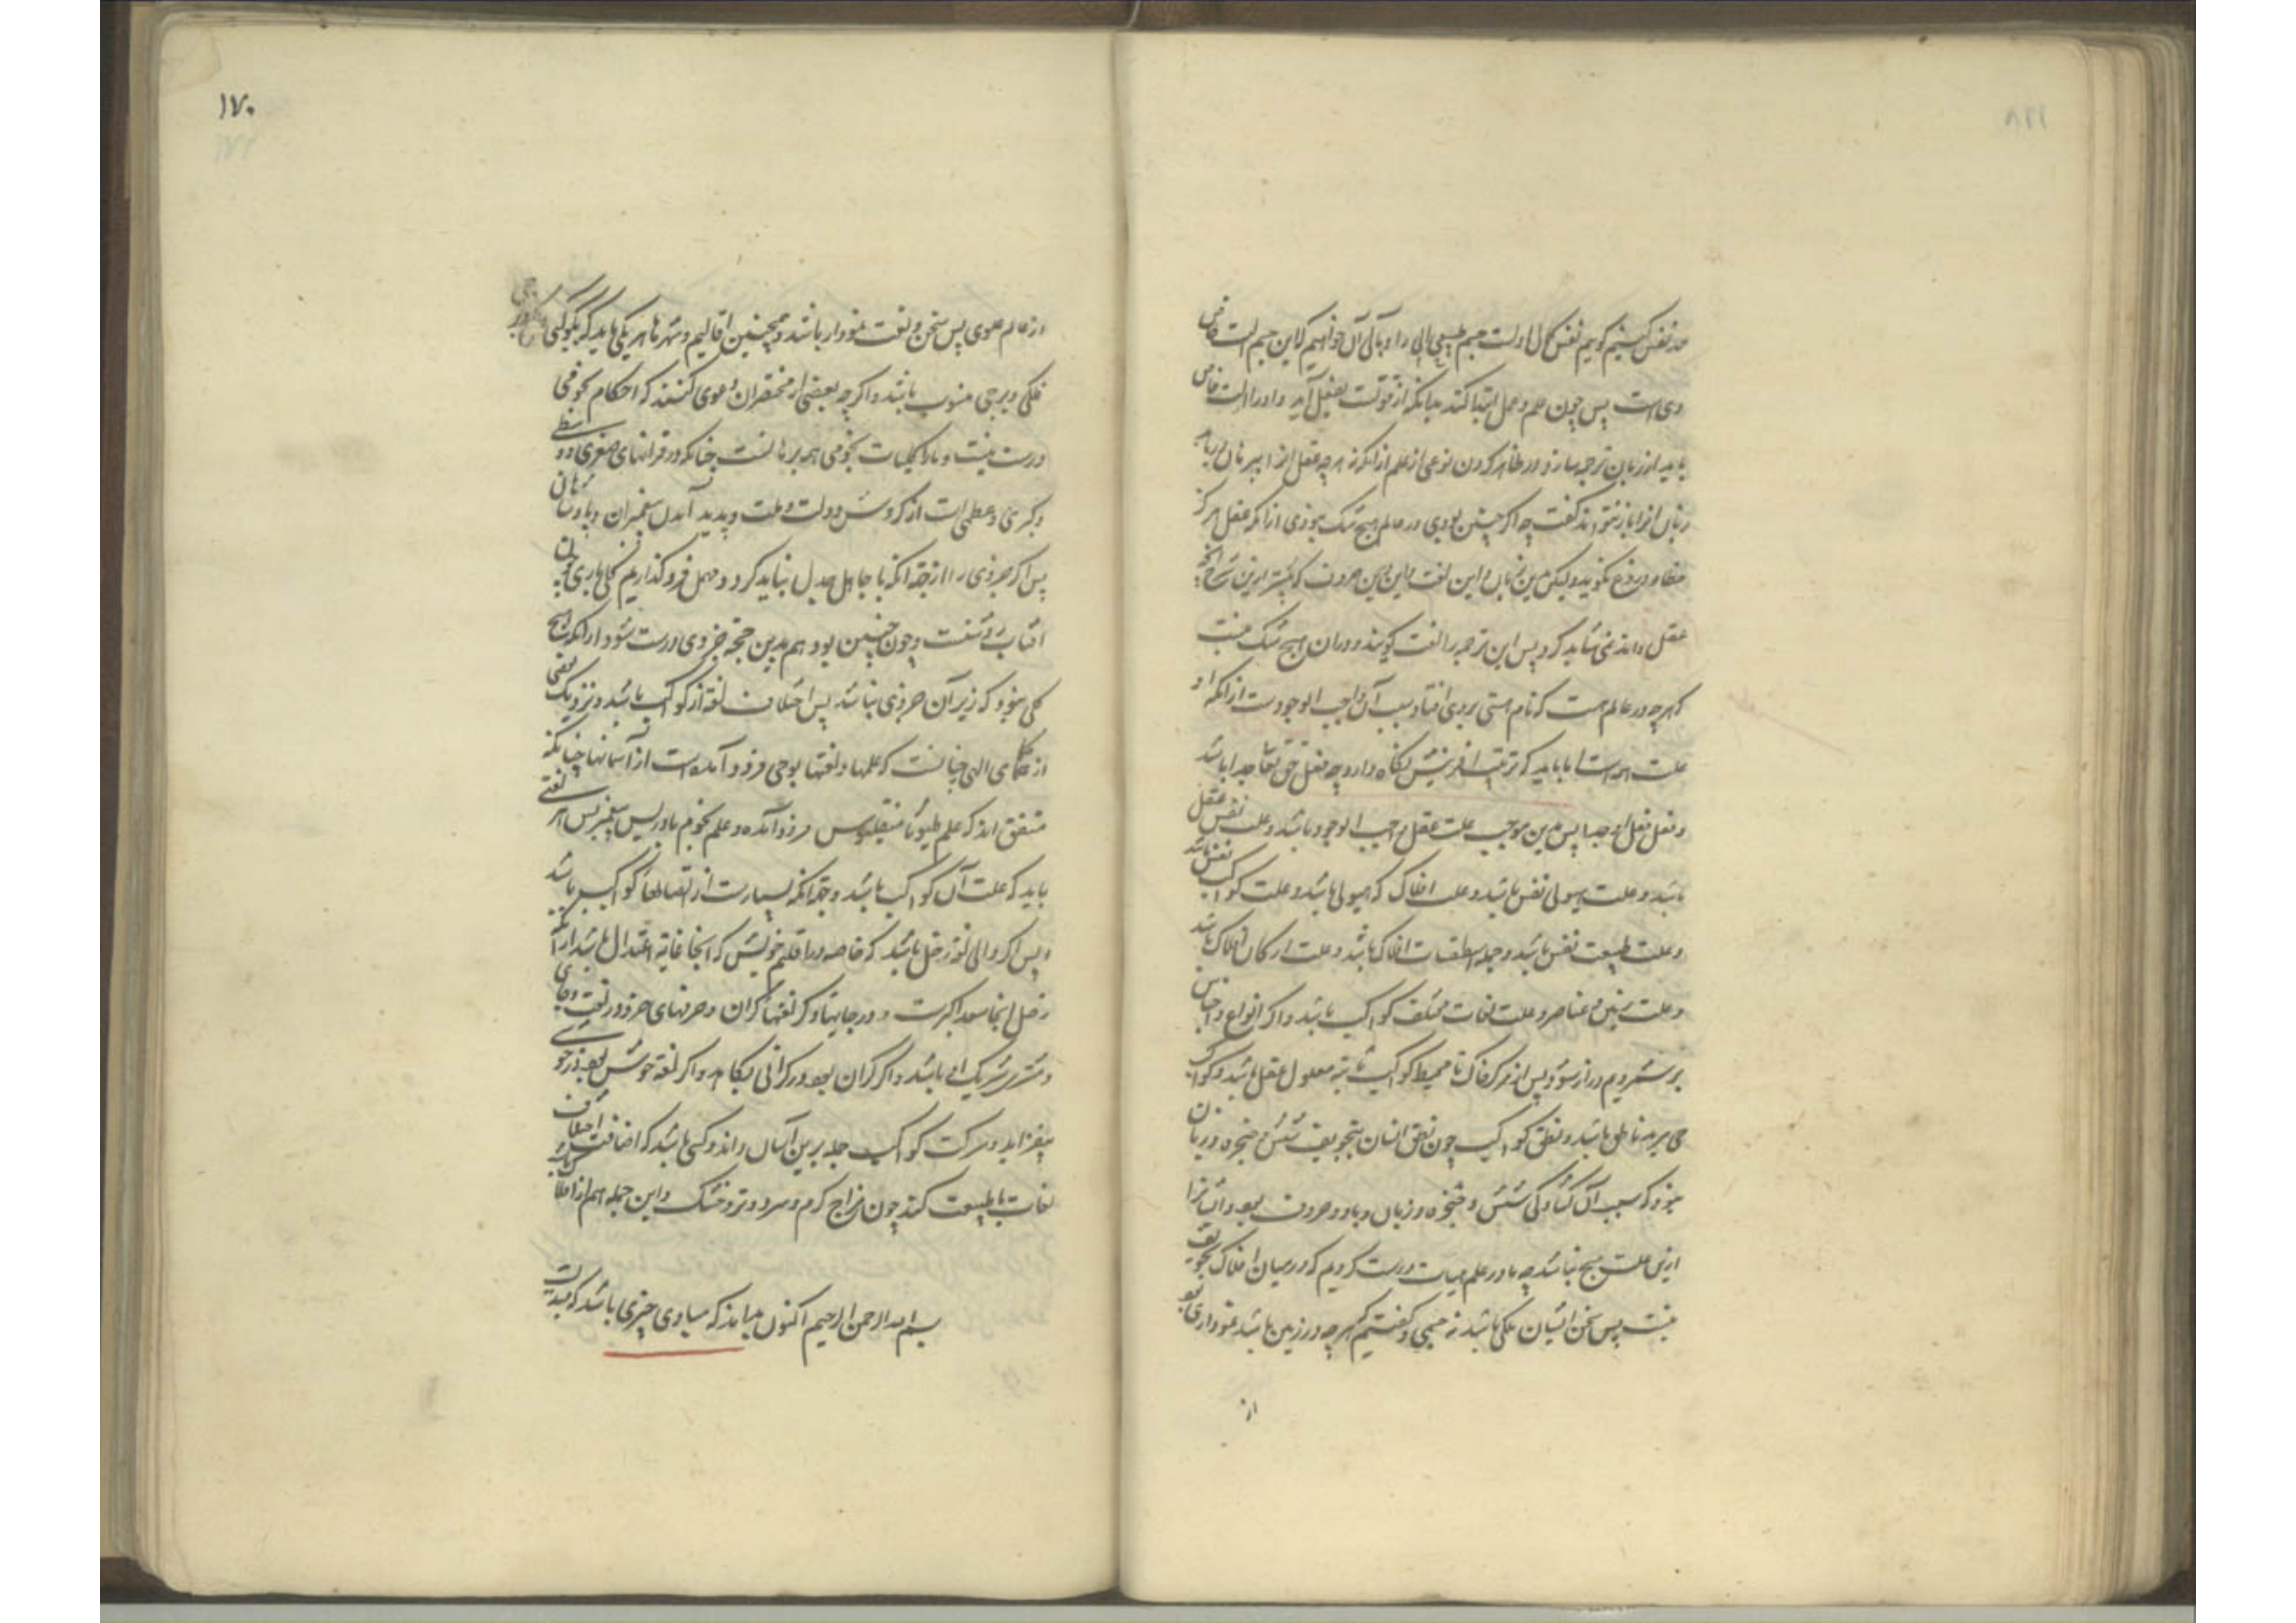 حد نفس کنیم گوییم نفس کمال اولست جسم طبیعی آلی را و بآلی آن خواهیم که این جسم آلت خاص
وی است پس چون علم و عمل ابتدا کند بدانکه از قوتست بفعل آید و او را آلت خاص
باید از زبان ترجمه سازد در ظاهر کردن نوعی از علم از آنکه نه هرچه عقل از
زبان آنرا باز نتواند گفت چه اگر چنین بودی در عالم هیچ شک نبودی از آنکه عقل هرگز
خطا و دروغ نگوید و لیکن بدین زبان و این لغت و این حروف که
عقل داند نمی شاید کرد پس این ترجمه را لغت گویند و در آن هیچ شک نیست
که هرچه در عالم هست که نام هستی بروی افتاد سبب آن واجب الوجودست از آنکه او
علت همه است اما باید که ترتیب آفرینش نگاه دارد چه فعل حق تعالی جدا باشد
و فعل فعل او جدا پس بدین موجب علت عقل واجب الوجود باشد و علت نفس عقل
باشد و علت هیولی نفس باشد و علت افلاک که هیولی باشد و علت کواکب نفس باشد
و علت طبیعت نفس باشد و جمله اسطقسات افلاک باشد و علت ارکان افلاک باشد
و علت عناصر و علت لغات مختلف کواکب باشد و اگر انواع و اجناس
بر شمریم دراز شود پس از مرکز خاک تا محیط کواکب ثابته معلول عقل باشد و کواکب
حی مرید ناطق باشد و نطق کواکب چون نطق انسان بتجویف شش و حنجره و زبان
نبود که سبب آن گشادگی شش و حنجره و زبان و باد و حروف بود و ایشانرا
ازین علت هیچ نباشد چه ما در علم هیات درست کردیم که در میان افلاک تجویف
نیست پس سخن ایشان ملکی باشد نه جسمی و گفتیم که هرچه در زمین باشد نموداری بود
از
١٧٠
از عالم علوی پس سخن و لغت نمودار باشد و همچنین اقالیم و شهرها هر یکی باید که بکوکبی
فلکی و برجی منسوب باشد و اگرچه بعضی از مختصران دعوی کنند که احکام نجومی
درست نیست و ما را کلیات نجومی همه برهانست چنانکه در قرانهای صغری و وسطی
و کبری و عظمی است از گردش دولت و ملت و پدید آمدن پیغمبران و پادشاهان
پس اگر جزوی را از جهة آنکه با جاهل جدل نباید کرد و مهمل فرو گذاریم کلی باری چون
آفتاب روشنست و چون چنین بود هم بدین حجة جزوی درست شود از آنکه هیچ
کلی نبود که زیر آن جزوی نباشد پس اختلاف لغة از کواکب باشد و نزدیک بعضی
از حکمای الهی چنانست که علمها و لغتها بوحی فرود آمده است از آسمانها چنانکه
متفق اند که علم طب فرود آمده و علم نجوم بادریس پیغمبر پس هر لغتی
باید که علت آن کواکب باشد و جهة آنکه بسیارست از اتصالها کواکب باشد
و پس اگر والی لغة زحل باشد که خاصه در اقلیم خویش که آنجا غایة اعتدال باشد از آنکه
زحل آنجا سعد اکبرست و در جایهای دگر لغتها گران و حرفهای
و مشتری شریک او باشد و اگر گران بود در گرانی بکاهد و اگر لغة خوش بود در خوشی
بیفزاید و حرکت کواکب جمله برین آسان داند و کسی باشد که اضافت اختلاف
لغات با طبیعت کند چون مزاج گرم و سرد و تر و خشک و این جمله هم از
بسم الله الرحمن الرحیم اکنون بداند که مبادی چیزی باشد که